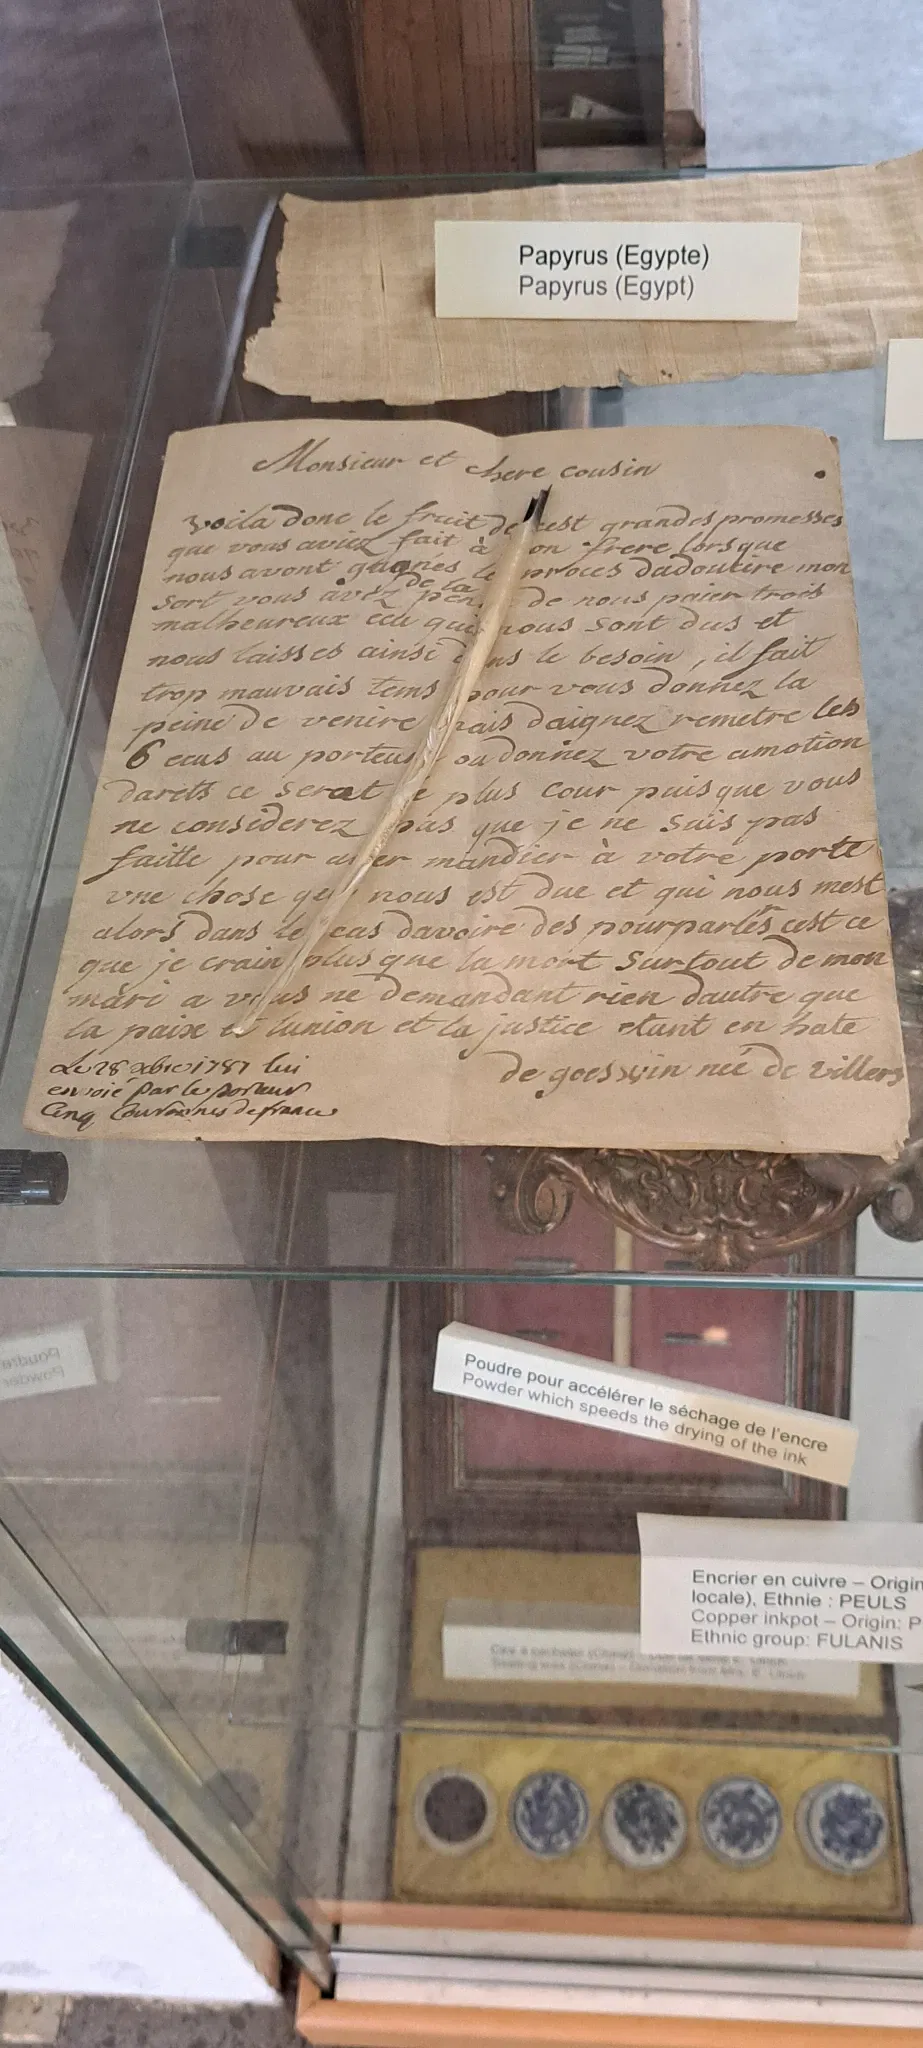 Papyrus (Egypte)
Papyrus (Egypt)
Monsieur et chere cousin
voila donc le fruit de cest grandes promesses
que vous aviez fait à on frere lorsque
nous avont gagnés le proces dadoucire mon
sort vous avez de la de nous paier trois
malheureux ecu qui nous sont dus et
nous laisses ainsi dans le besoin, il fait
trop mauvais tems pour vous donnez la
peine de venire mais daignez remetre les
6 ecus au porteur ou donnez votre
darets ce serat le plus cour puis que vous
ne considerez pas que je ne suis pas
faitte pour aller mandier à votre porte
vne chose qui nous est due et qui nous mest
alors dans le cas davoire des pourparlés cest ce
que je crain plus que la mort surtout de mon
mari a vous ne demandant rien dautre que
la paix et lunion et la justice etant en hate
de goeswin neé de villers
Le 28 xbre 1787 lui
envoié par le porteur
Cinq Couronnes de france
Poudre pour accélérer le séchage de l'encre
Powder which speeds the drying of the ink
Encrier en cuivre – Origin
locale), Ethnie : PEULS
Copper inkpot – Origin: P
Ethnic group: FULANIS